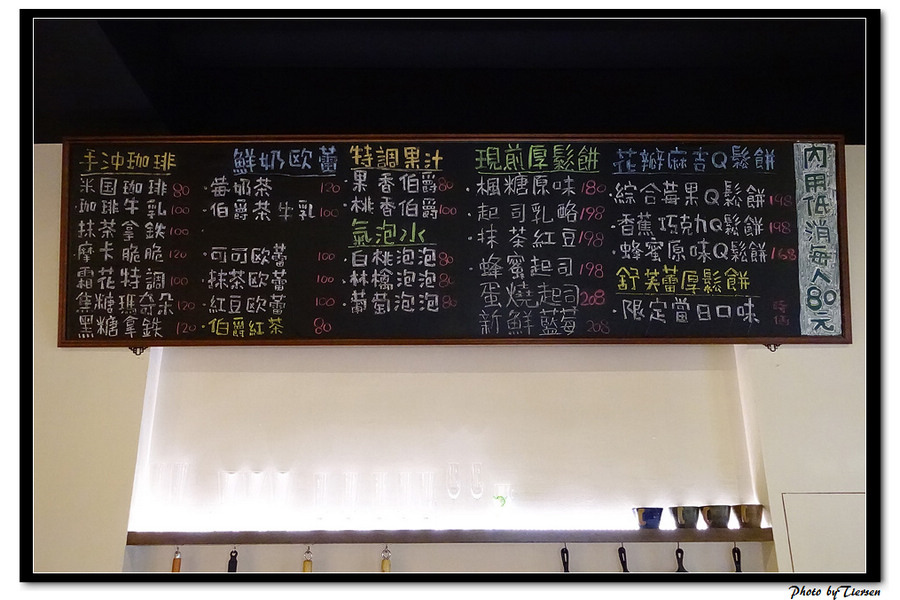 手沖珈琲
米国珈琲 80
珈琲牛乳 100
抹茶拿鉄 100
摩卡脆脆 120
霜花特調 100
焦糖瑪奇朵 120
黑糖拿鉄 120
鮮奶欧蕾
·莓奶茶 120
·伯爵茶牛乳 100
·可可欧蕾 100
·抹茶欧蕾 100
·紅豆欧蕾 100
·伯爵紅茶 80
特調果汁
·果香伯爵 80
·桃香伯爵 100
氣泡水
·白桃泡泡 80
·林檎泡泡 80
·葡萄泡泡 80
現煎厚鬆餅
·楓糖原味 180
·起司乳酪 198
·抹茶紅豆 198
·蜂蜜起司 198
蛋燒起司 208
新鮮藍莓 208
花瓣麻吉Q鬆餅
·綜合莓果Q鬆餅 198
·香蕉巧克力Q鬆餅 198
·蜂蜜原味Q鬆餅 168
舒芙蕾厚鬆餅
·限定當日口味 時価
內用低消每人80元
Photo by Tiersen